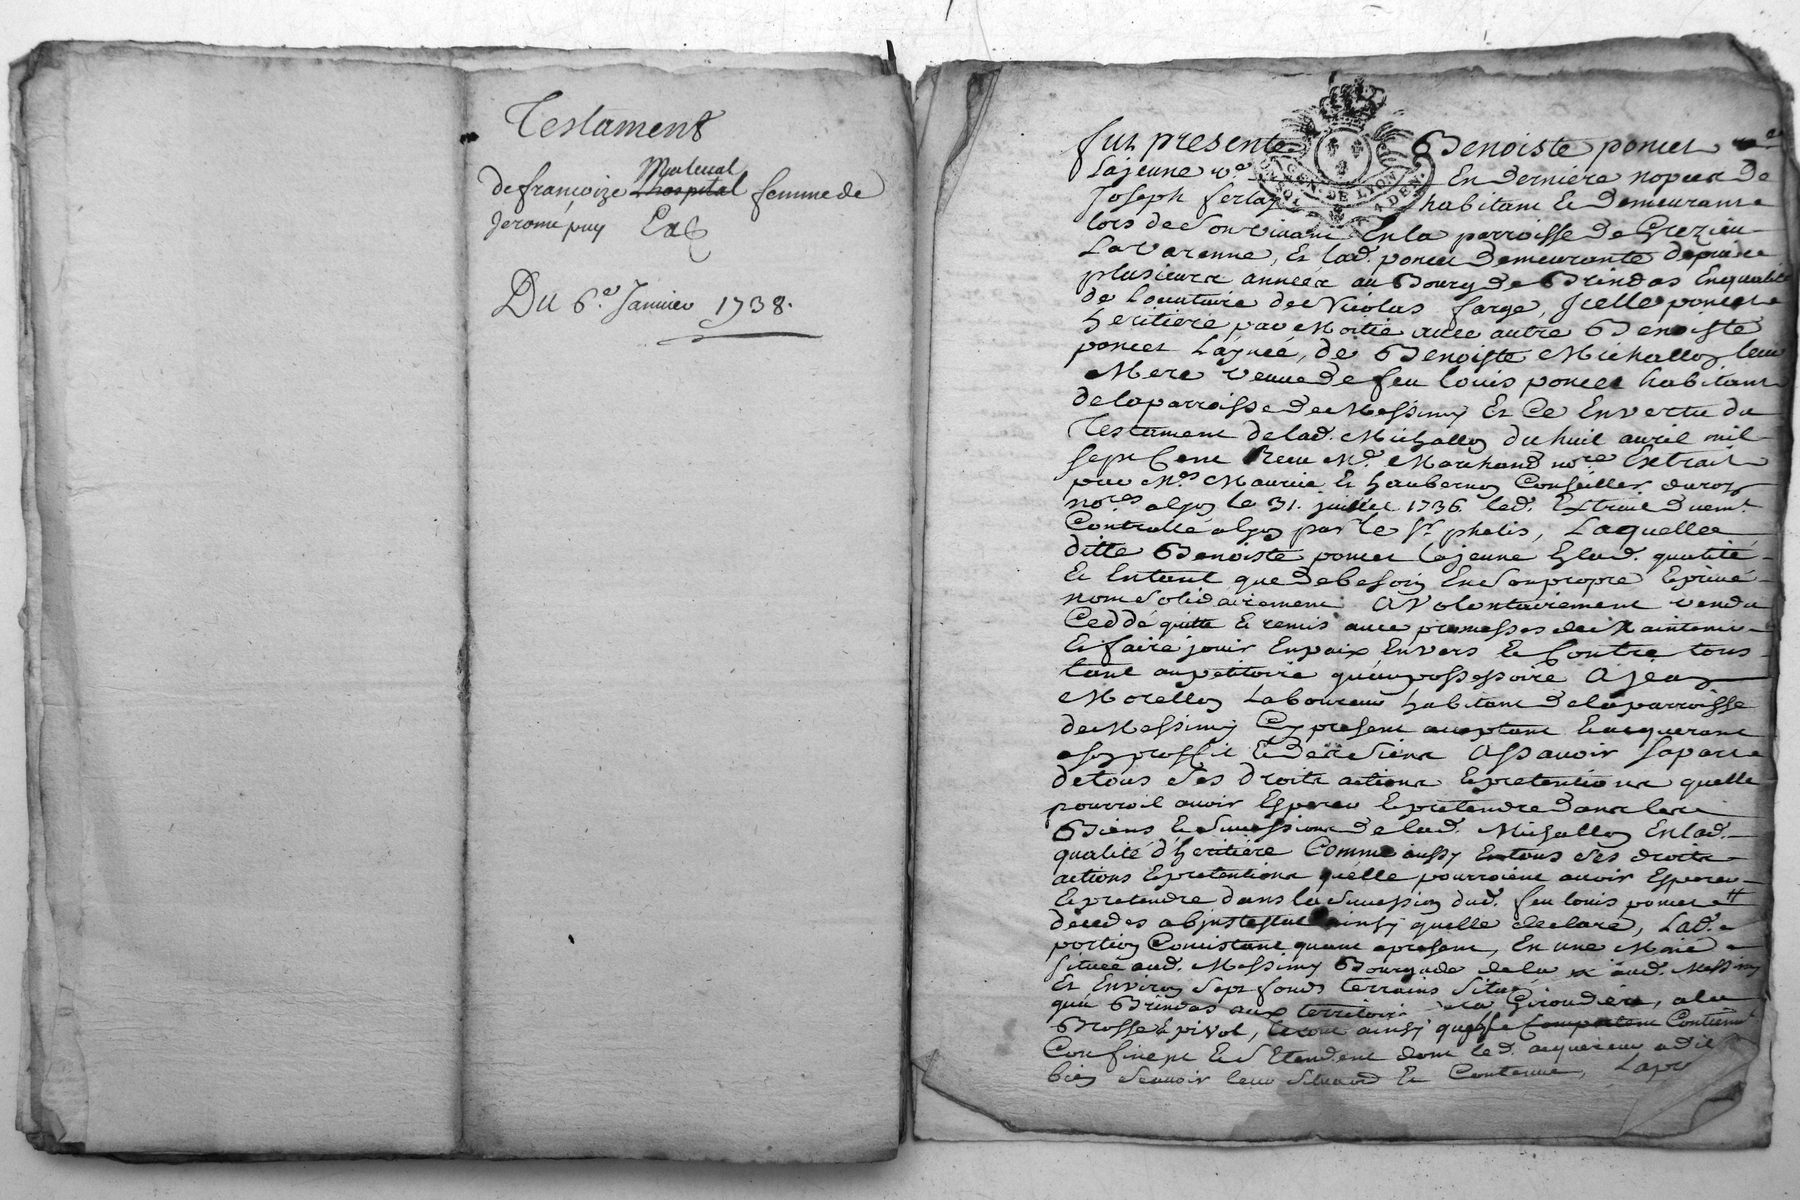 Testament
Materual
de françoize Lhospital femme de
Jeromé puy Ex
Du 6.e Janvier 1738.
GEN. DE LYON
fut presente Benoiste poncet
Lajeune v.e En derniere nopces de
Joseph ferlay habitant et demeurant
lors de son vivant En la parroisse de Grezieu
La Varenne, Et lad. poncet demeurante depuis
plusieurs années au Bourg de Brindas En qualité
de Locataire de Nicolas farge, Jcelle poncet
heritiere par Moitié avec autre Benoiste
poncet L'aynée, de Benoiste Michallon leur
Mere veuve de feu louis poncet habitant
de la parroisse de Messimy Et Ce En vertu du
Testament de lad. Michallon du huit avril mil
sept Cent Receu M.e Marchand no.re Extrait
par M.es Maurice Et haubernon Conseillers du roy
no.res a lyon le 31. juillet 1736. led. Extrait duem.t
Controllé a lyon par le Sr phelis, Laquelle
ditte Benoiste poncet lajeune Es lad. qualité
Et Entant que de besoin En son propre Et privé
nom solidairement A volontairement vendu
Ceddé quitté Et remis avec promesses de Maintenir
Et faire jouir En paix Envers Et Contre tous
tant au petitoire qu'au possessoire A jean
Morellon Laboureur habitant de la parroisse
de Messimy Cy present acceptant Et acquerant
a son proffit Et des siens Assavoir sa part
de tous ses droits actions Et pretentions quelle
pourroit avoir Esperer Et pretendre dans les
Biens Et succession de lad. Michallon En lad.
qualité d'heritiere Comme aussy En tous ses droits
actions Et pretentions quelle pourroient avoir Esperer
Et pretendre dans la succession dud. feu louis poncet
decedes abjntestat ainsy quelle declare, Lad.
portion Consistant quant apresent, En une Maison
située aud. Messimy Bourgade de la aud. Messimy
Et Environ sept fonds terrains Situés
qua Brindas aux territoire la Giroudiere, a la
Brosse Et pivol, le tout ainsy quelle Comportent Contienent
Confinent Et s'Etendent dont led. acquereur a dit
bien scavoir leur situaõn Et Contenue,